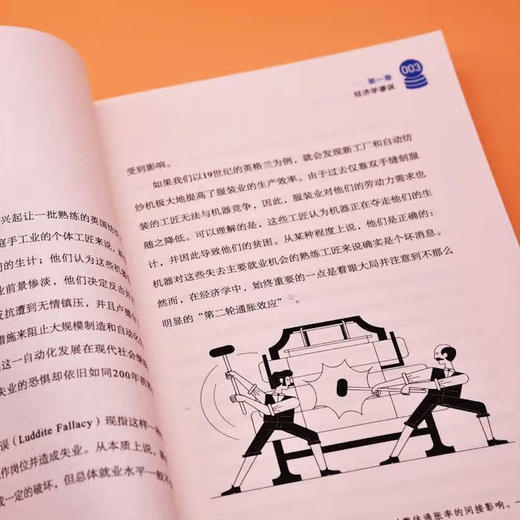 兴起让一批熟练的英国纺
庭手工业的个体工匠来说,
们的生计;他们认为这些机器
业前景惨淡,他们决定反击并
反抗遭到无情镇压,并且卢德
措施来阻止大规模制造和自动化
这一自动化发展在现代社会继
失业的恐惧却依旧如同200年前
误(Luddite Fallacy)现指这样一
作岗位并造成失业。从本质上说,
成一定的破坏,但总体就业水平一般不
第一章
经济学谬误
003
受到影响。
如果我们以19世纪的英格兰为例,就会发现新工厂和自动纺
纱机极大地提高了服装业的生产效率。由于过去仅靠双手缝制服
装的工匠无法与机器竞争,因此,服装业对他们的劳动力需求也
随之降低。可以理解的是,这些工匠认为机器正在夺走他们的生
计,并因此导致他们的贫困。从某种程度上说,他们是正确的:
机器对这些失去主要就业机会的熟练工匠来说确实是个坏消息。
然而,在经济学中,始终重要的一点是着眼大局并注意到不那么
明显的“第二轮通胀效应”①。
整体通胀率的间接影响。